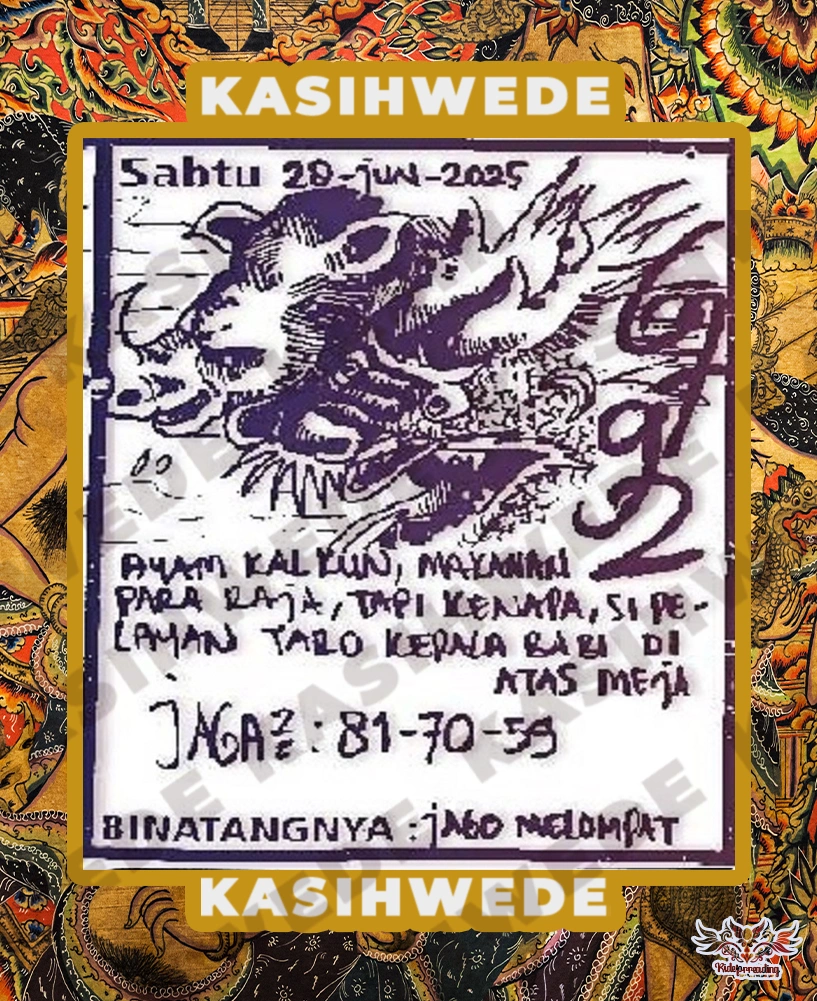 KASIHWEDE
Sabtu 28-jun-2025
692
AYAM KALKUN, MAKANAN
PARA RAJA, TAPI KENAPA, SI PE-
LAYAN TARO KEPALA BABI DI
ATAS MEJA
JAGA2 : 81-70-59
BINATANGNYA : JAGO MELOMPAT
KASIHWEDE